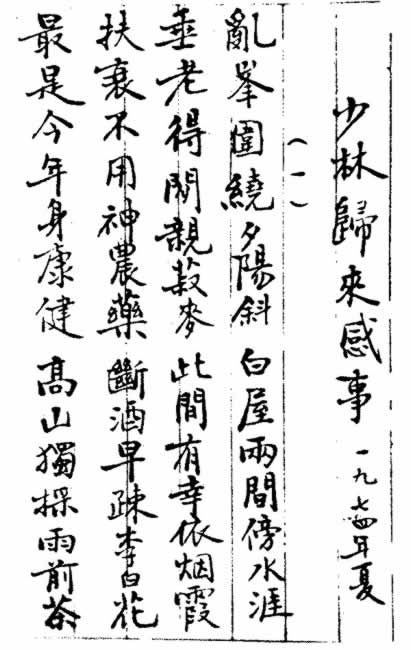 少林歸來感事 一九七四年夏
(一)
亂峯圍繞夕陽斜 白屋兩間傍水涯
垂老得閒親菽麥 此間有幸依烟霞
扶衰不用神農藥 斷酒早疎李白花
最是今年身康健 高山獨採雨前茶